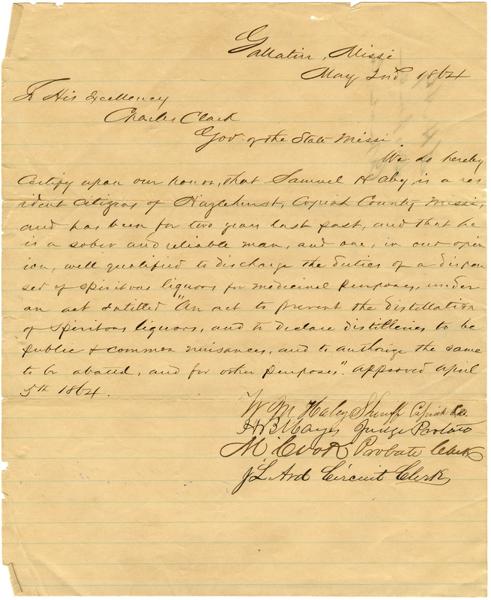 Gallatin, Missi
May 2nd 1864
To His Excellency
Charles Clark
Gov of the State Missi
We do hereby
certify upon our honor, that Samuel Haley is a res
ident citizens of Hazlehurst, Copiah County Missi,
and has been for two years last past, and that he
is a sober and reliable man, and one, in our opin
ion, well qualified to discharge the duties of a dispen
ser of spiritous liquors for medicinal purposes, under
an act entitled "An act to prevent the distillation
of spiritous liquors, and to declare distilleries to be
public & common nuisances, and to authorize the same
to be abated, and for other purposes". approved April
5th 1864.
Wm Haley Sheriff Copiah Co
H B Mayes Judge Probate
M Cook Probate Clerk
J L Ard Circuit Clerk